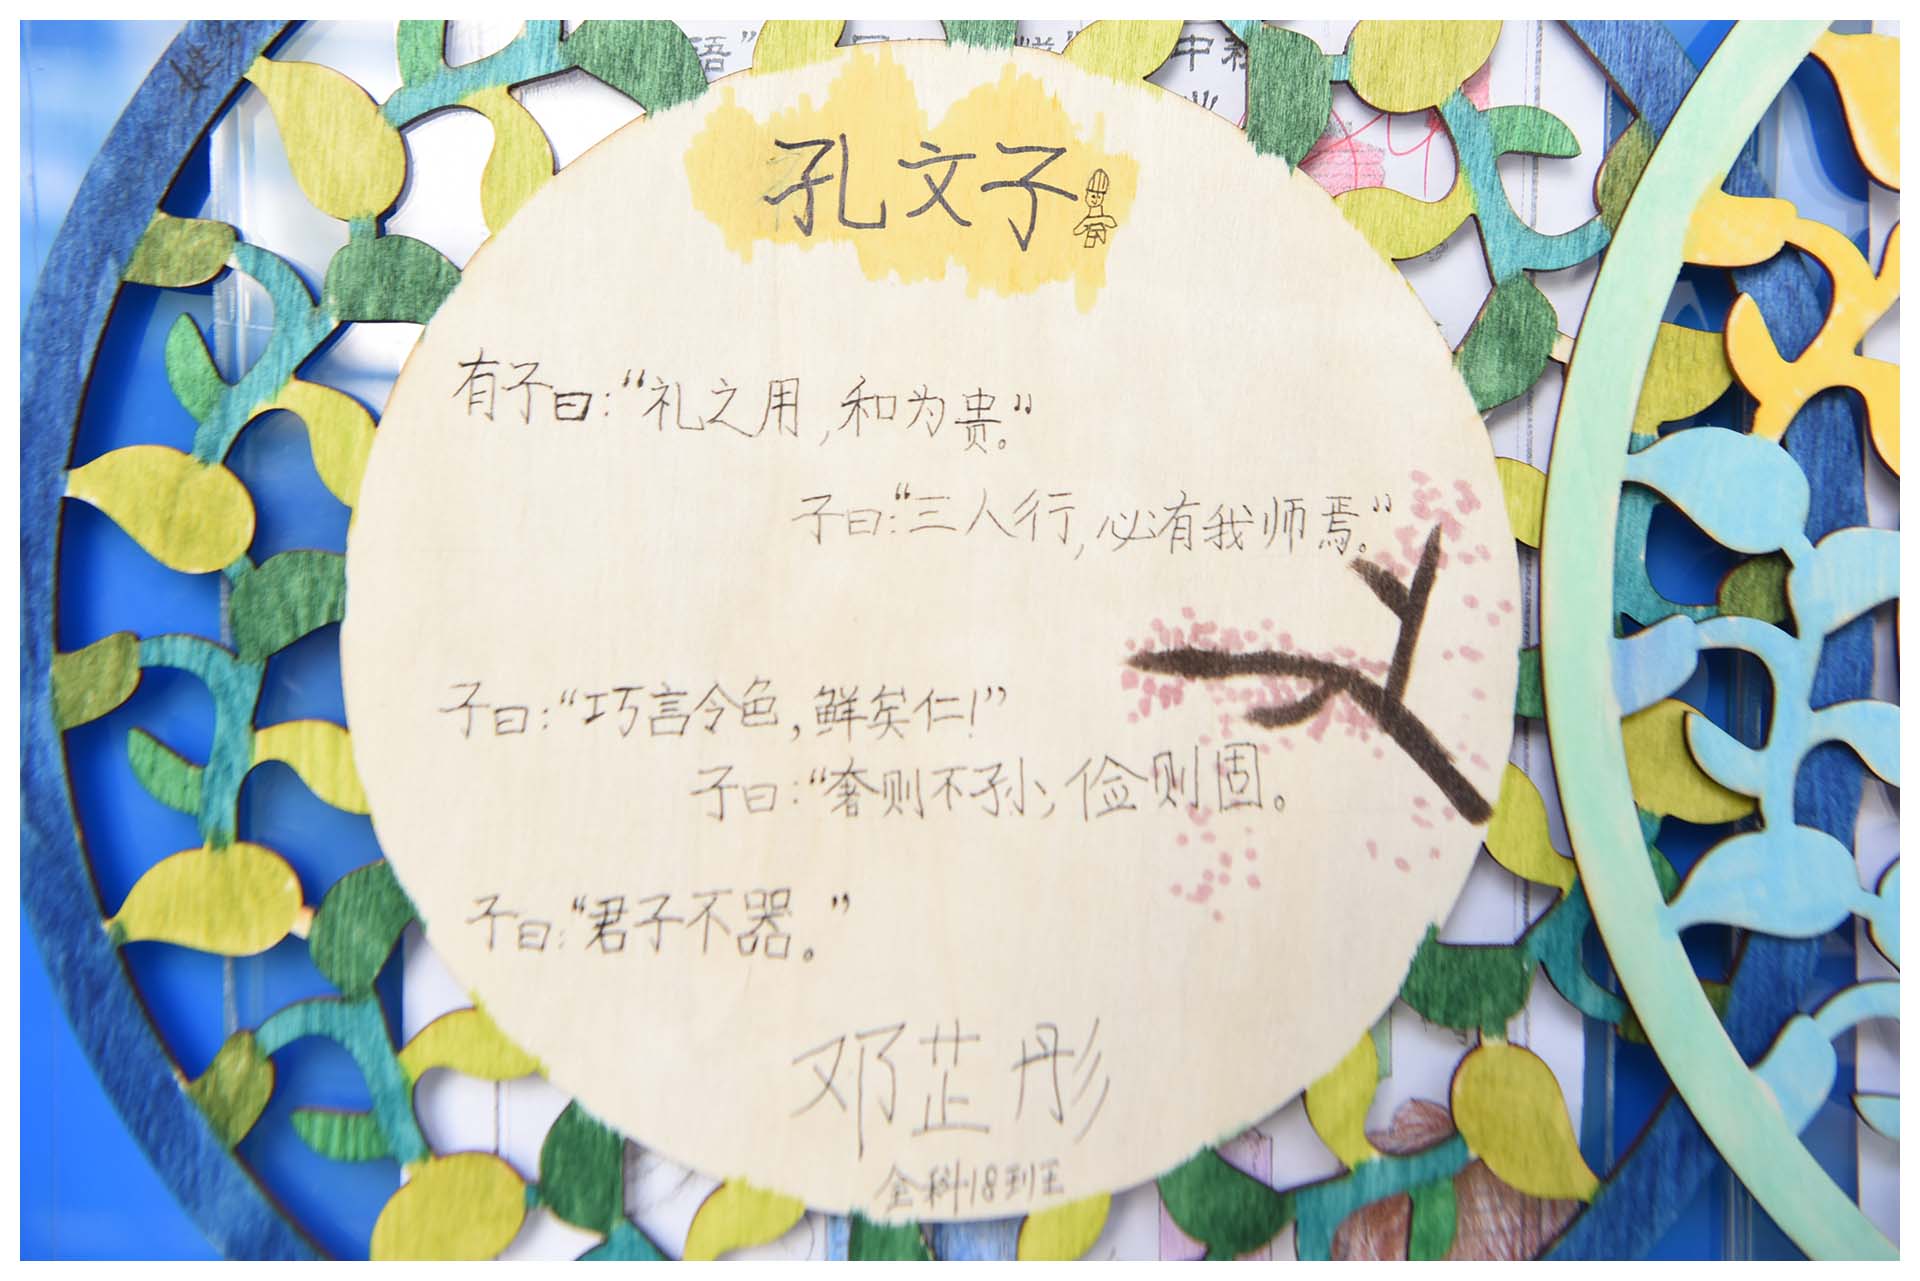 孔文子
有子曰：“礼之用，和为贵。”
子曰：“三人行，必有我师焉。”
子曰：“巧言令色，鲜矣仁！”
子曰：“奢则不孙，俭则固。
子曰：“君子不器。”
邓芷彤
全科18班
语”
中